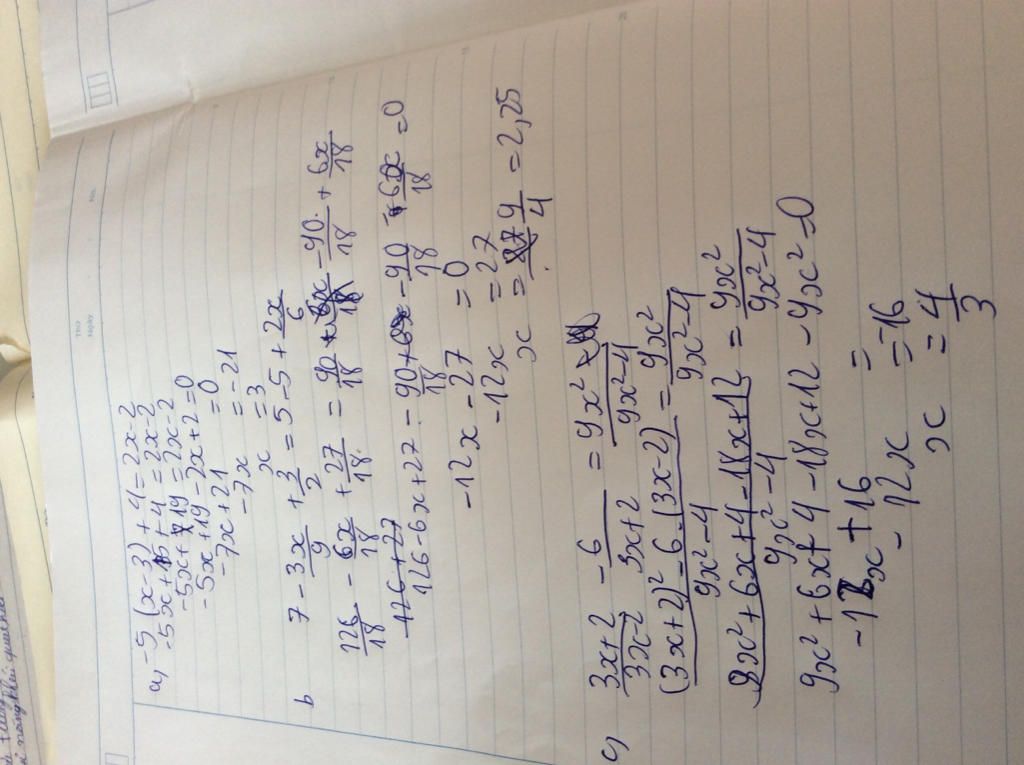 Thứ
Ngày
No.
a) -5(x-3)+4=2x-2
-5x+15+4=2x-2
-5x+19=2x-2
-5x+19-2x+2=0
-7x+21=0
-7x=-21
x=3
b 7-3x/9+3/2=5-5+2x/6
126/18-6x/18+27/18=90/18-90/18+6x/18
126-6x+27-90/18-90/18+6x/18=0
-12x-27=0
-12x=27
x=9/4=2,25
c) 3x+2/3x-2-6/3x+2=9x²/9x²-4
(3x+2)²-6-(3x-2)/9x²-4=9x²/9x²-4
9x²+6x+4-18x+12/9x²-4=9x²/9x²-4
9x²+6x+4-18x+12-9x²=0
-12x+16=
-12x=-16
x=4/3